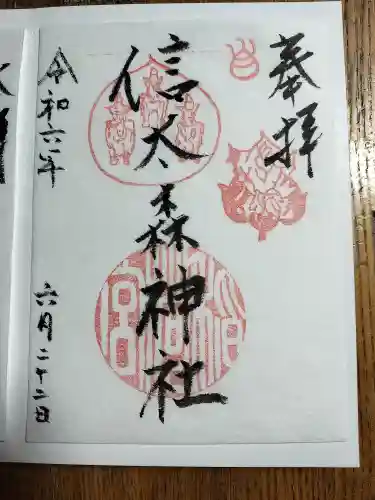 奉拝
信太森神社
令和六年
六月二十二日